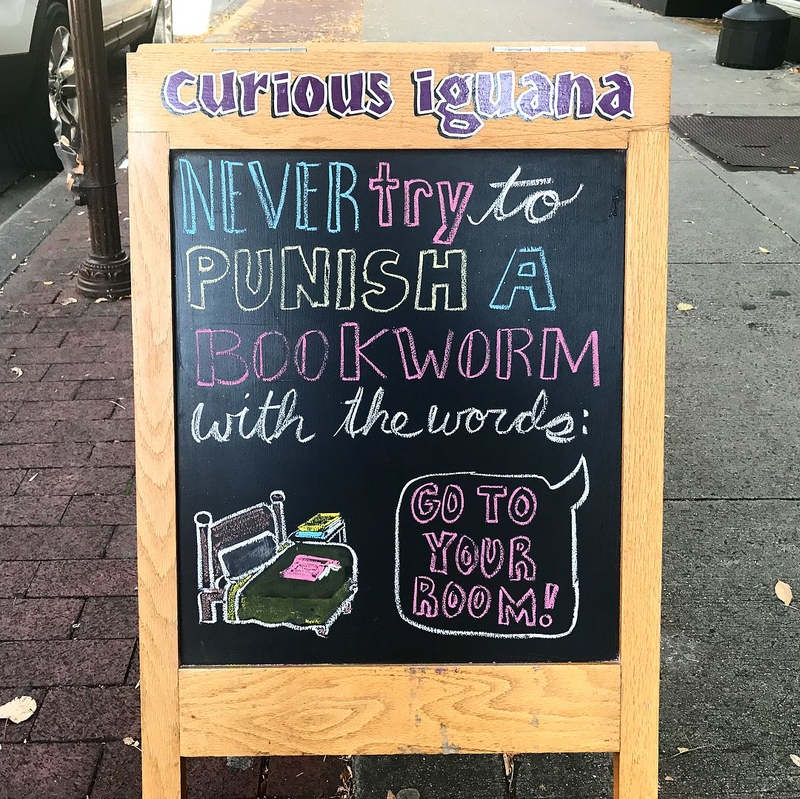 curious iguana
NEVER try to
PUNISH A
BOOKWORM
with the words:
GO TO
YOUR
ROOM!